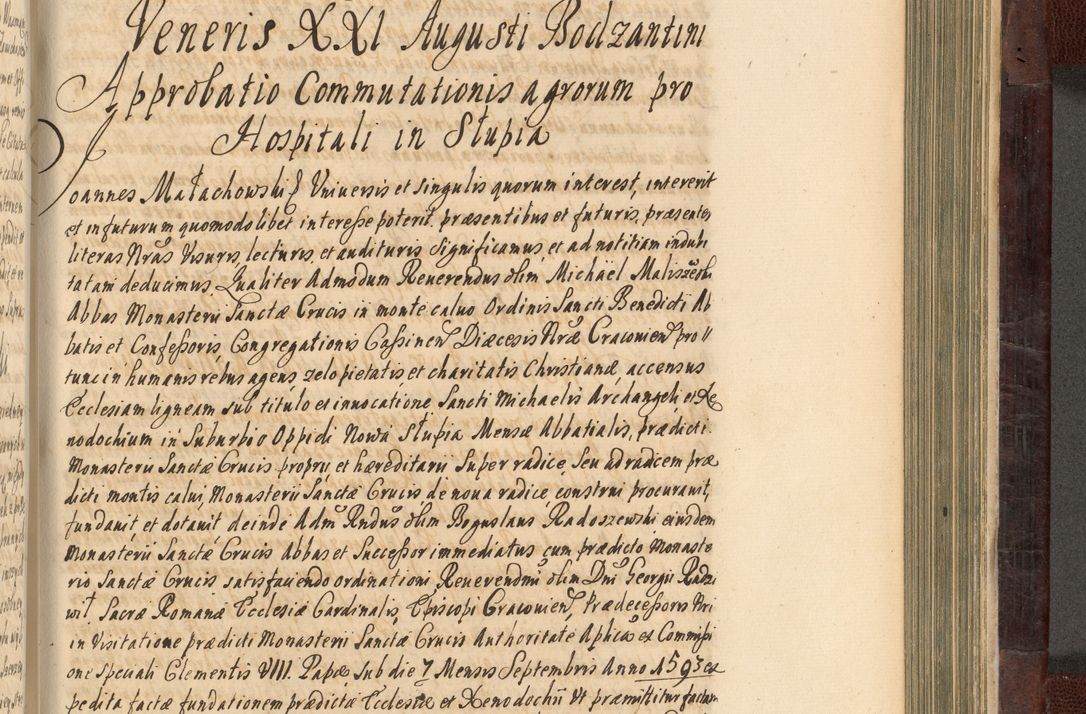 Veneris XXI Augusti Bodzantini
Approbatio Commutationis agrorum pro
Hospitali in Słupia
Joannes Małachowski & Universis et singulis quorum interest, intererit
et in futurum quomodolibet interesse poterit praesentibus et futuris, praesentes
literas Nras Visuris, lecturis, et audituris significamus, et ad notitiam indubi
tatam deducimus. Qualiter Admodum Reverendus olim Michaël Maliszewski
Abbas Monasterii Sanctae Crucis in monte calvo Ordinis Sancti Benedicti Ab
batis et Confessoris, Congregationis Cassinen Diaecesis Nrae Cracovien pro
tunc in humanis rebus agens, zelo pietatis et charitatis Christianae accensus
Ecclesiam ligneam sub titulo et invocatione Sancti Michaelis Archangeli, et Xe
nodochium in Suburbio Oppidi Nowa Słupia Mensae Abbatialis, praedicti
Monasterii Sanctae Crucis proprii, et haereditarii super radice, seu ad radicem prae
dicti montis calvi, Monasterii Sanctae Crucis, de nova radice construi procuravit,
fundavit, et dotavit deinde Admd Rndus olim Boguslaus Radoszewski eiusdem
Monasterii Sanctae Crucis Abbas et Successor immediatus, cum praedicto Monaste
rio Sanctae Crucis satisfaciendo ordinationi Reverendmi olim Dni Georgii Radzi
wił Sacrae Romanae Ecclesiae Cardinalis, Episcopi Cracovien, Praedecessoris Nri
in Visitatione praedicti Monasterii Sanctae Crucis Authoritate Aplica et Commissi
one speciali Clementis VIII. Papae sub die 7 Mensis Septembris Anno 1593 ex
pedita factae fundationem praedictae Ecclesiae et Xenodochii Ut praemittitur factam